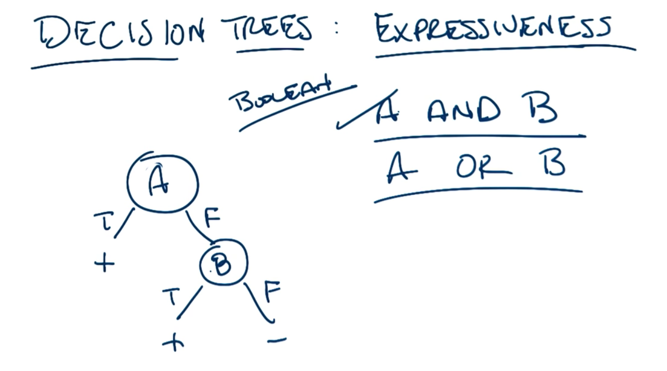 DECISION TREES : EXPRESSIVENESS
BOOLEAN
A AND B
A OR B
A
T F
+
B
T F
+ -